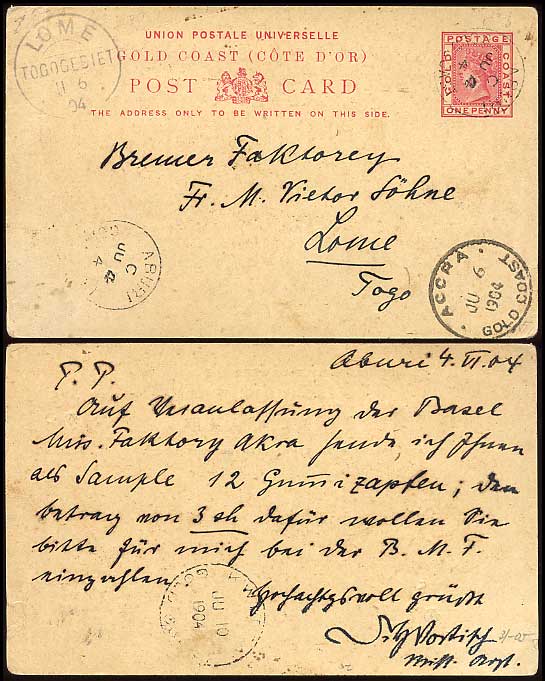 LOME
TOGOGEBIET
11 6
04
UNION POSTALE UNIVERSELLE
GOLD COAST (CÔTE D'OR)
POST CARD
THE ADDRESS ONLY TO BE WRITTEN ON THIS SIDE.
GOLD COAST
POSTAGE
ONE PENNY
Bremer Faktorey
Fr. M. Vietor Söhne
Lome
Togo
ABURI
C
JU 4
ACCRA
JU 6
1904
GOLD COAST
Aburi 4. VI. 04
P. P.
Auf Veranlassung der Basel
Miss. Faktory Akra sende ich Ihnen
als Sample 12 Gum̅izapfen; den
betrag von 3 sh dafür wollen Sie
bitte für mich bei der B. M. F.
einzahlen
Hochachtungsvoll grüßt
Vortisch
Miss. Arzt.
JU 10
1904